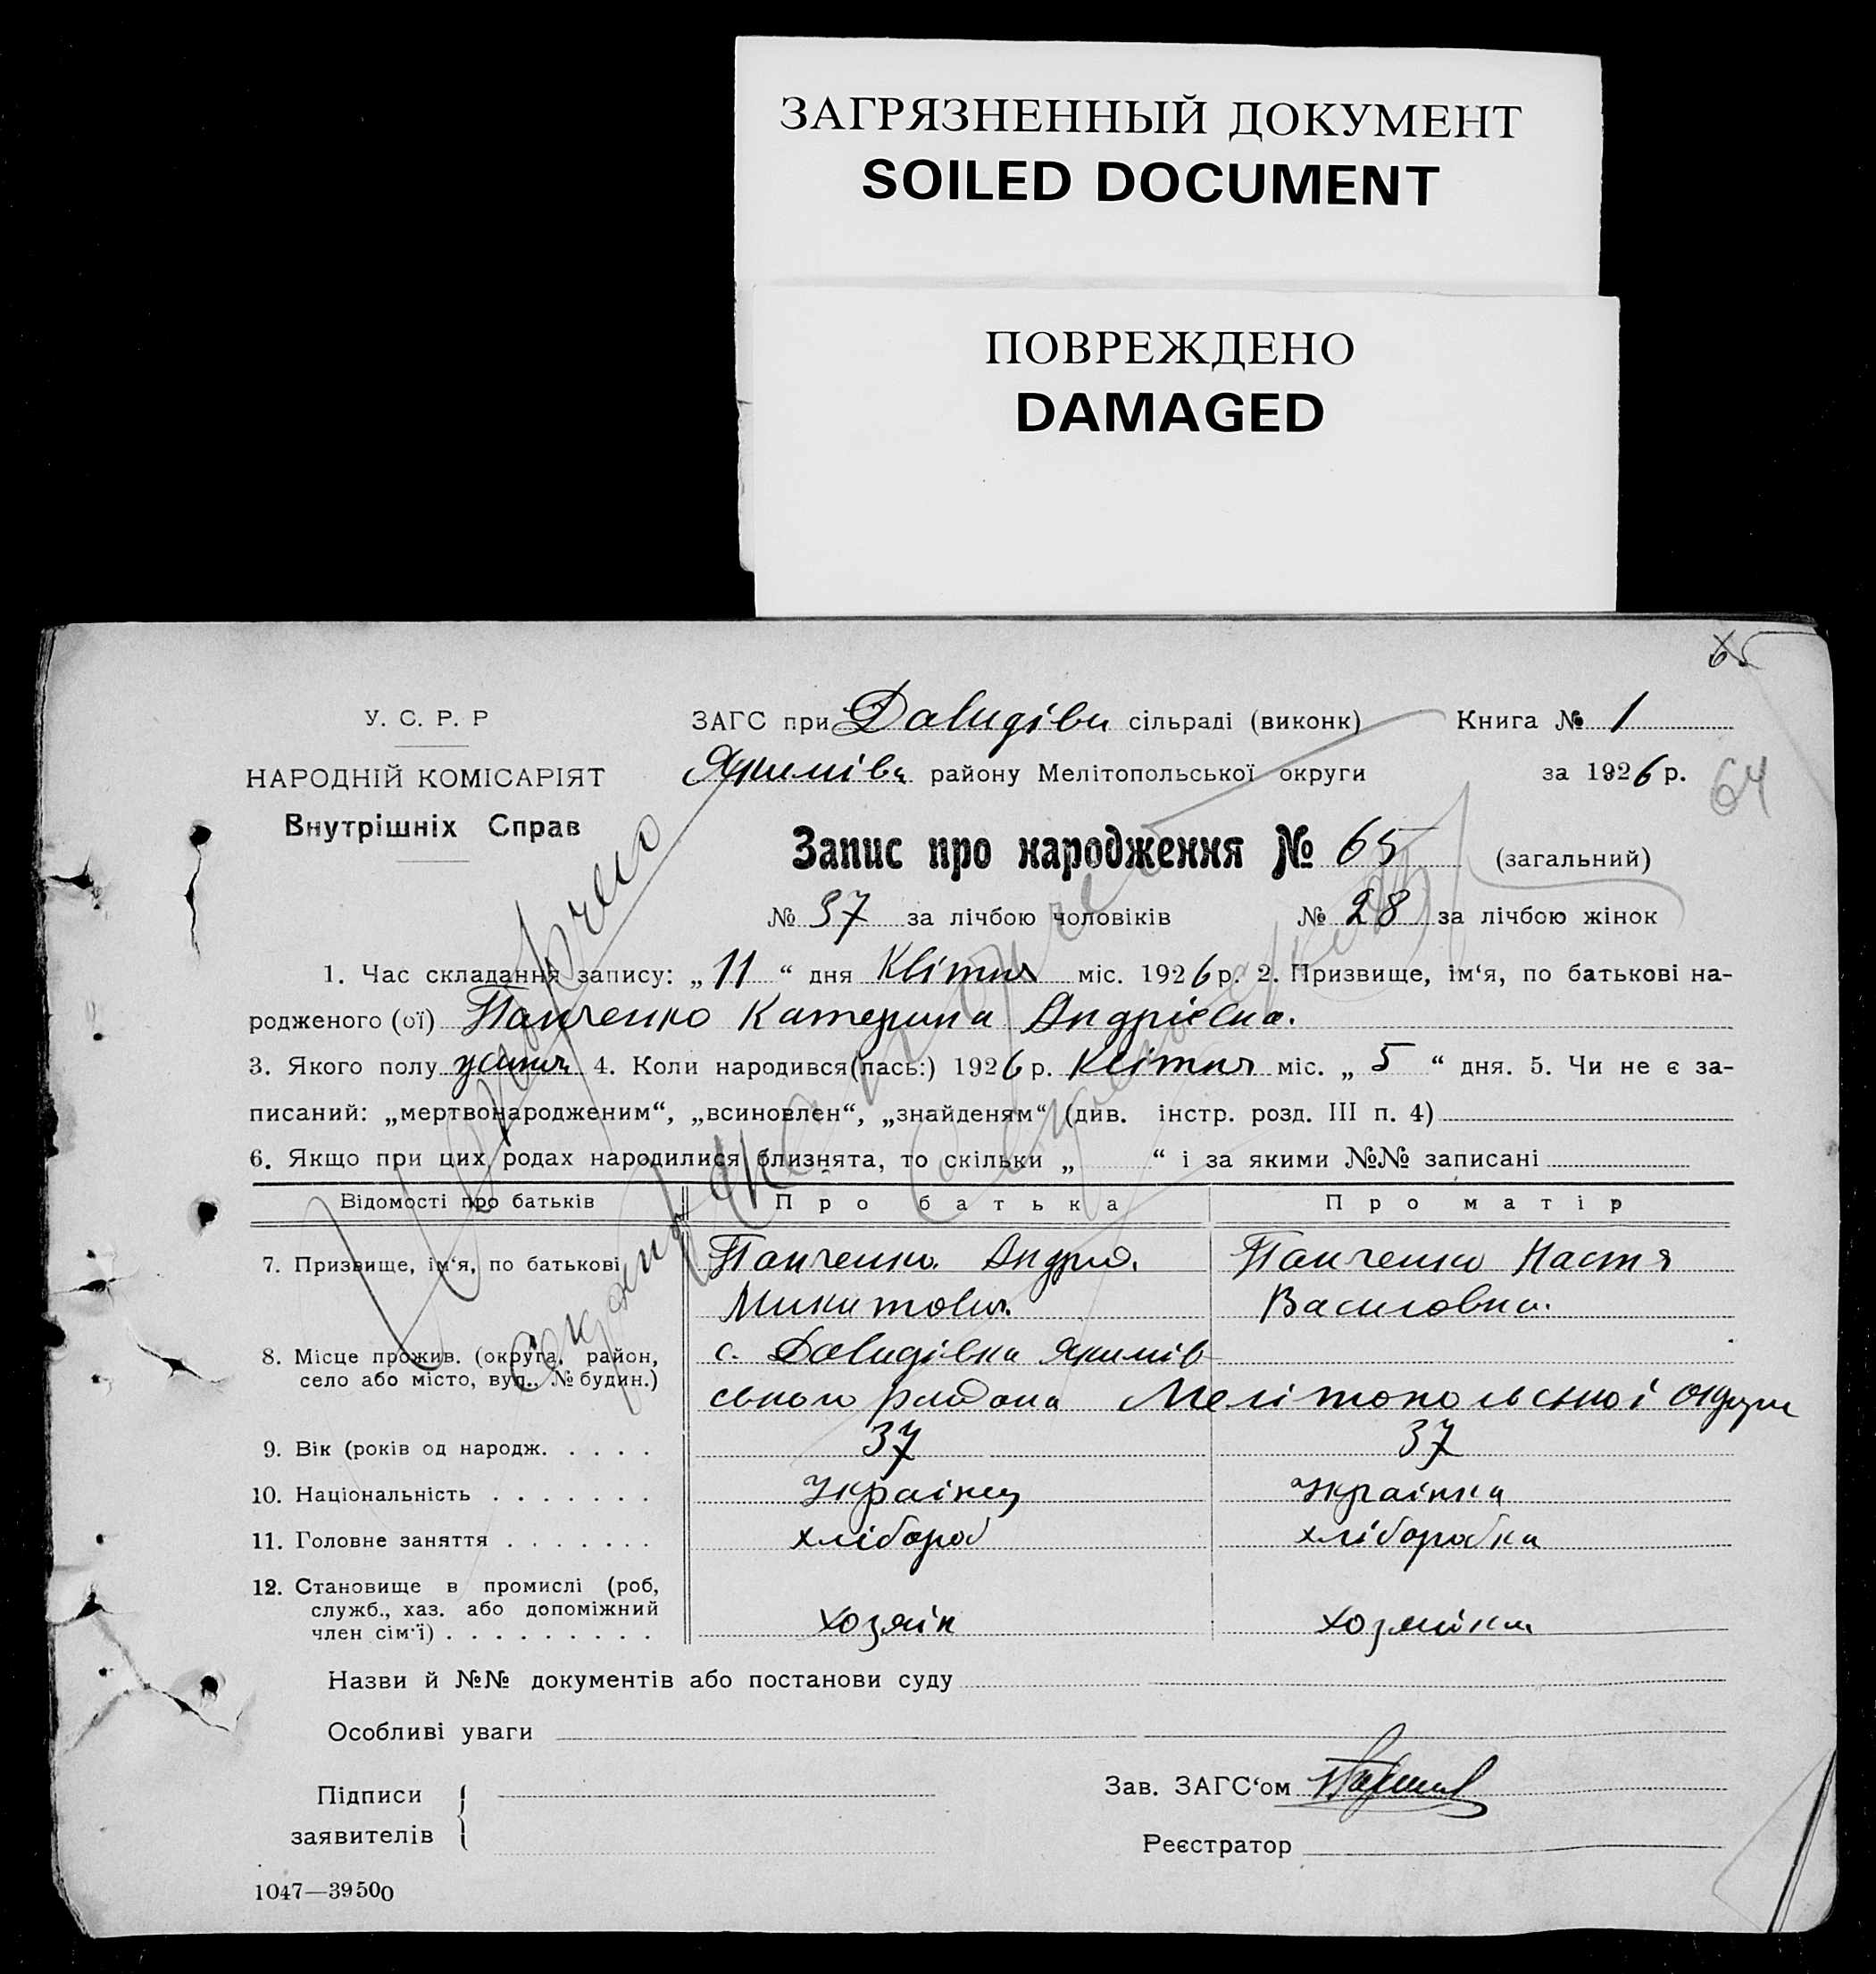 ЗАГРЯЗНЕННЫЙ ДОКУМЕНТ
SOILED DOCUMENT
ПОВРЕЖДЕНО
DAMAGED
У. С. Р. Р
НАРОДНІЙ КОМІСАРІЯТ
Внутрішніх Справ
ЗАГС при Давидівц сільраді (виконк) Книга № 1
Якимівц району Мелітопольської округи за 1926 р.
64
Запис про народження № 65 (загальний)
№ 37 за лічбою чоловіків № 28 за лічбою жінок
1. Час складання запису: „11“ дня Квітня міс. 1926 р. 2. Призвище, ім‘я, по батькові на-
родженого (ої) Панченко Катерина Андрієвна.
3. Якого полу жиноч 4. Коли народився(лась:) 1926 р. Квітня міс. „5“ дня. 5. Чи не є за-
писаний: „мертвонародженим“, „всиновлен“, „знайденям“ (див. інстр. розд. III п. 4)
6. Якщо при цих родах народилися близнята, то скільки „ “ і за якими №№ записані
Відомості про батьків Про батька Про матір
7. Призвище, ім‘я, по батькові Панченко Андрій Панченко Настя
Микитович Василовна.
8. Місце прожив. (округа, район, с. Давидівка Якимів
село або місто, вул., № будин.) ського района Мелітопольської округи
9. Вік (років од народж. . . . . 37 37
10. Національність . . . . . . . Українец Українка
11. Головне заняття . . . . . . . хлібороб хлiборобка
12. Становище в промислі (роб,
служб., хаз. або допоміжний
член сім‘ї) . . . . . . . . . хозяїн хозяйка
Назви й №№ документів або постанови суду
Особливі уваги
Підписи
заявителів
Зав. ЗАГС‘ом
Реєстратор
1047—39500